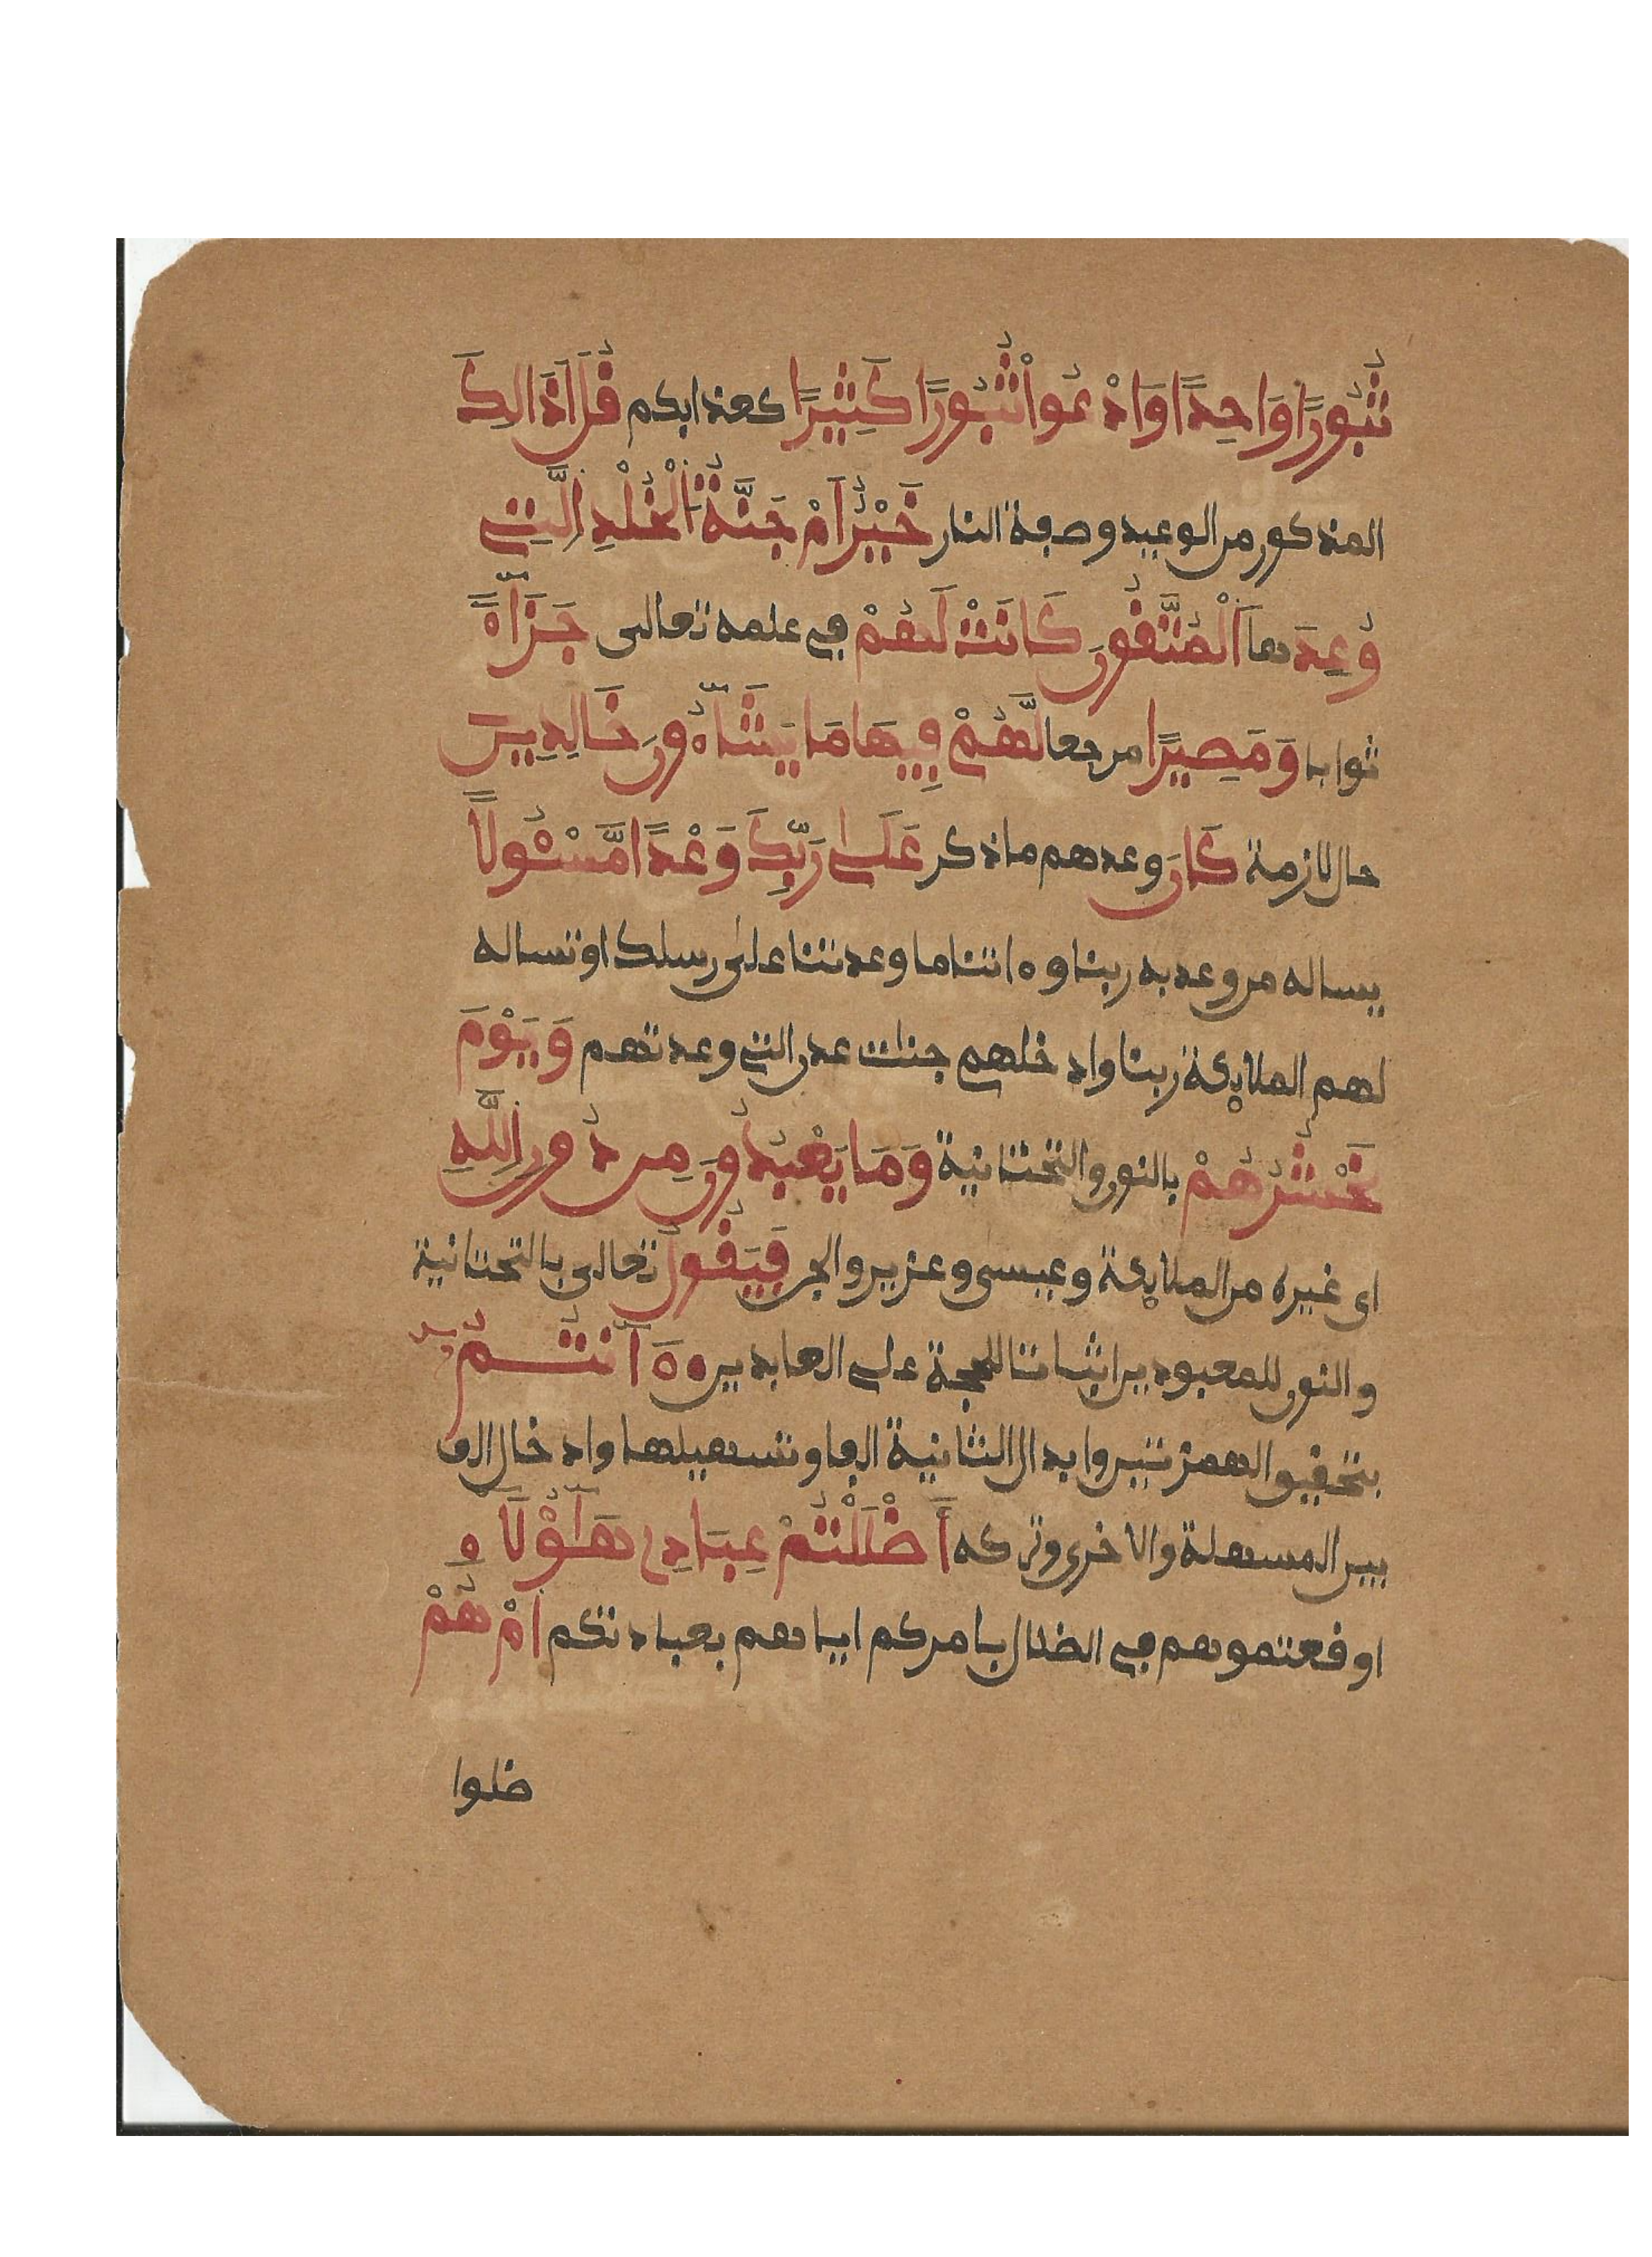 ثُبُورًا وَاحِدًا وَادْعُواْ ثُبُورًا كَثِيرًا كعذابكم قُلَ اَذَالِكَ
المذكور من الوعيد وصفة النار خَيْرٌ اَمْ جَنَّةُ اَلْخُلْدِ اِلَّتِے
وُعِدَ ها اَلْمُتَّقُونَ كَانَتْ لَهُمْ في علمه تعالى جَزَآءً
ثوابا وَمَصِيرًا مرجعا لَّهُمْ فِيهَا مَا يَشَآءُونَ خَالِدِينَ
حال لازمة كَانَ وعدهم ما ذكر عَلَىٰ رَبِّكَ وَعْدًا مَّسْـُٔولًا
يساله من وعد به ربنا وءاتنا ما وعدتنا على رسلك او تساله
لهم الملايكة ربنا وادخلهم جنات عدن التي وعدتهم وَيَوْمَ
نَحْشُرُهُمْ بالنون والتحتانية وَمَا يَعْبُدُونَ مِن دُونِ اِللَّهِ
اى غيره من الملايكة وعيسى وعزير والجن فَيَقُولُ تعالى بالتحتانية
والنون للمعبودين اثباتا للحجة على العابدين ءَآنتُمُۥ
بتحقيق الهمزتين وابدال الثانية الفا وتسهيلها وادخال الف
بين المسهلة والاخرى وتركه أَضْلَلْتُمْ عِبَادِے هَـٰٓؤُلَآءِ
اوقعتموهم في الضلال بامركم اياهم بعبادتكم اَمْ هُمْ
ضلوا